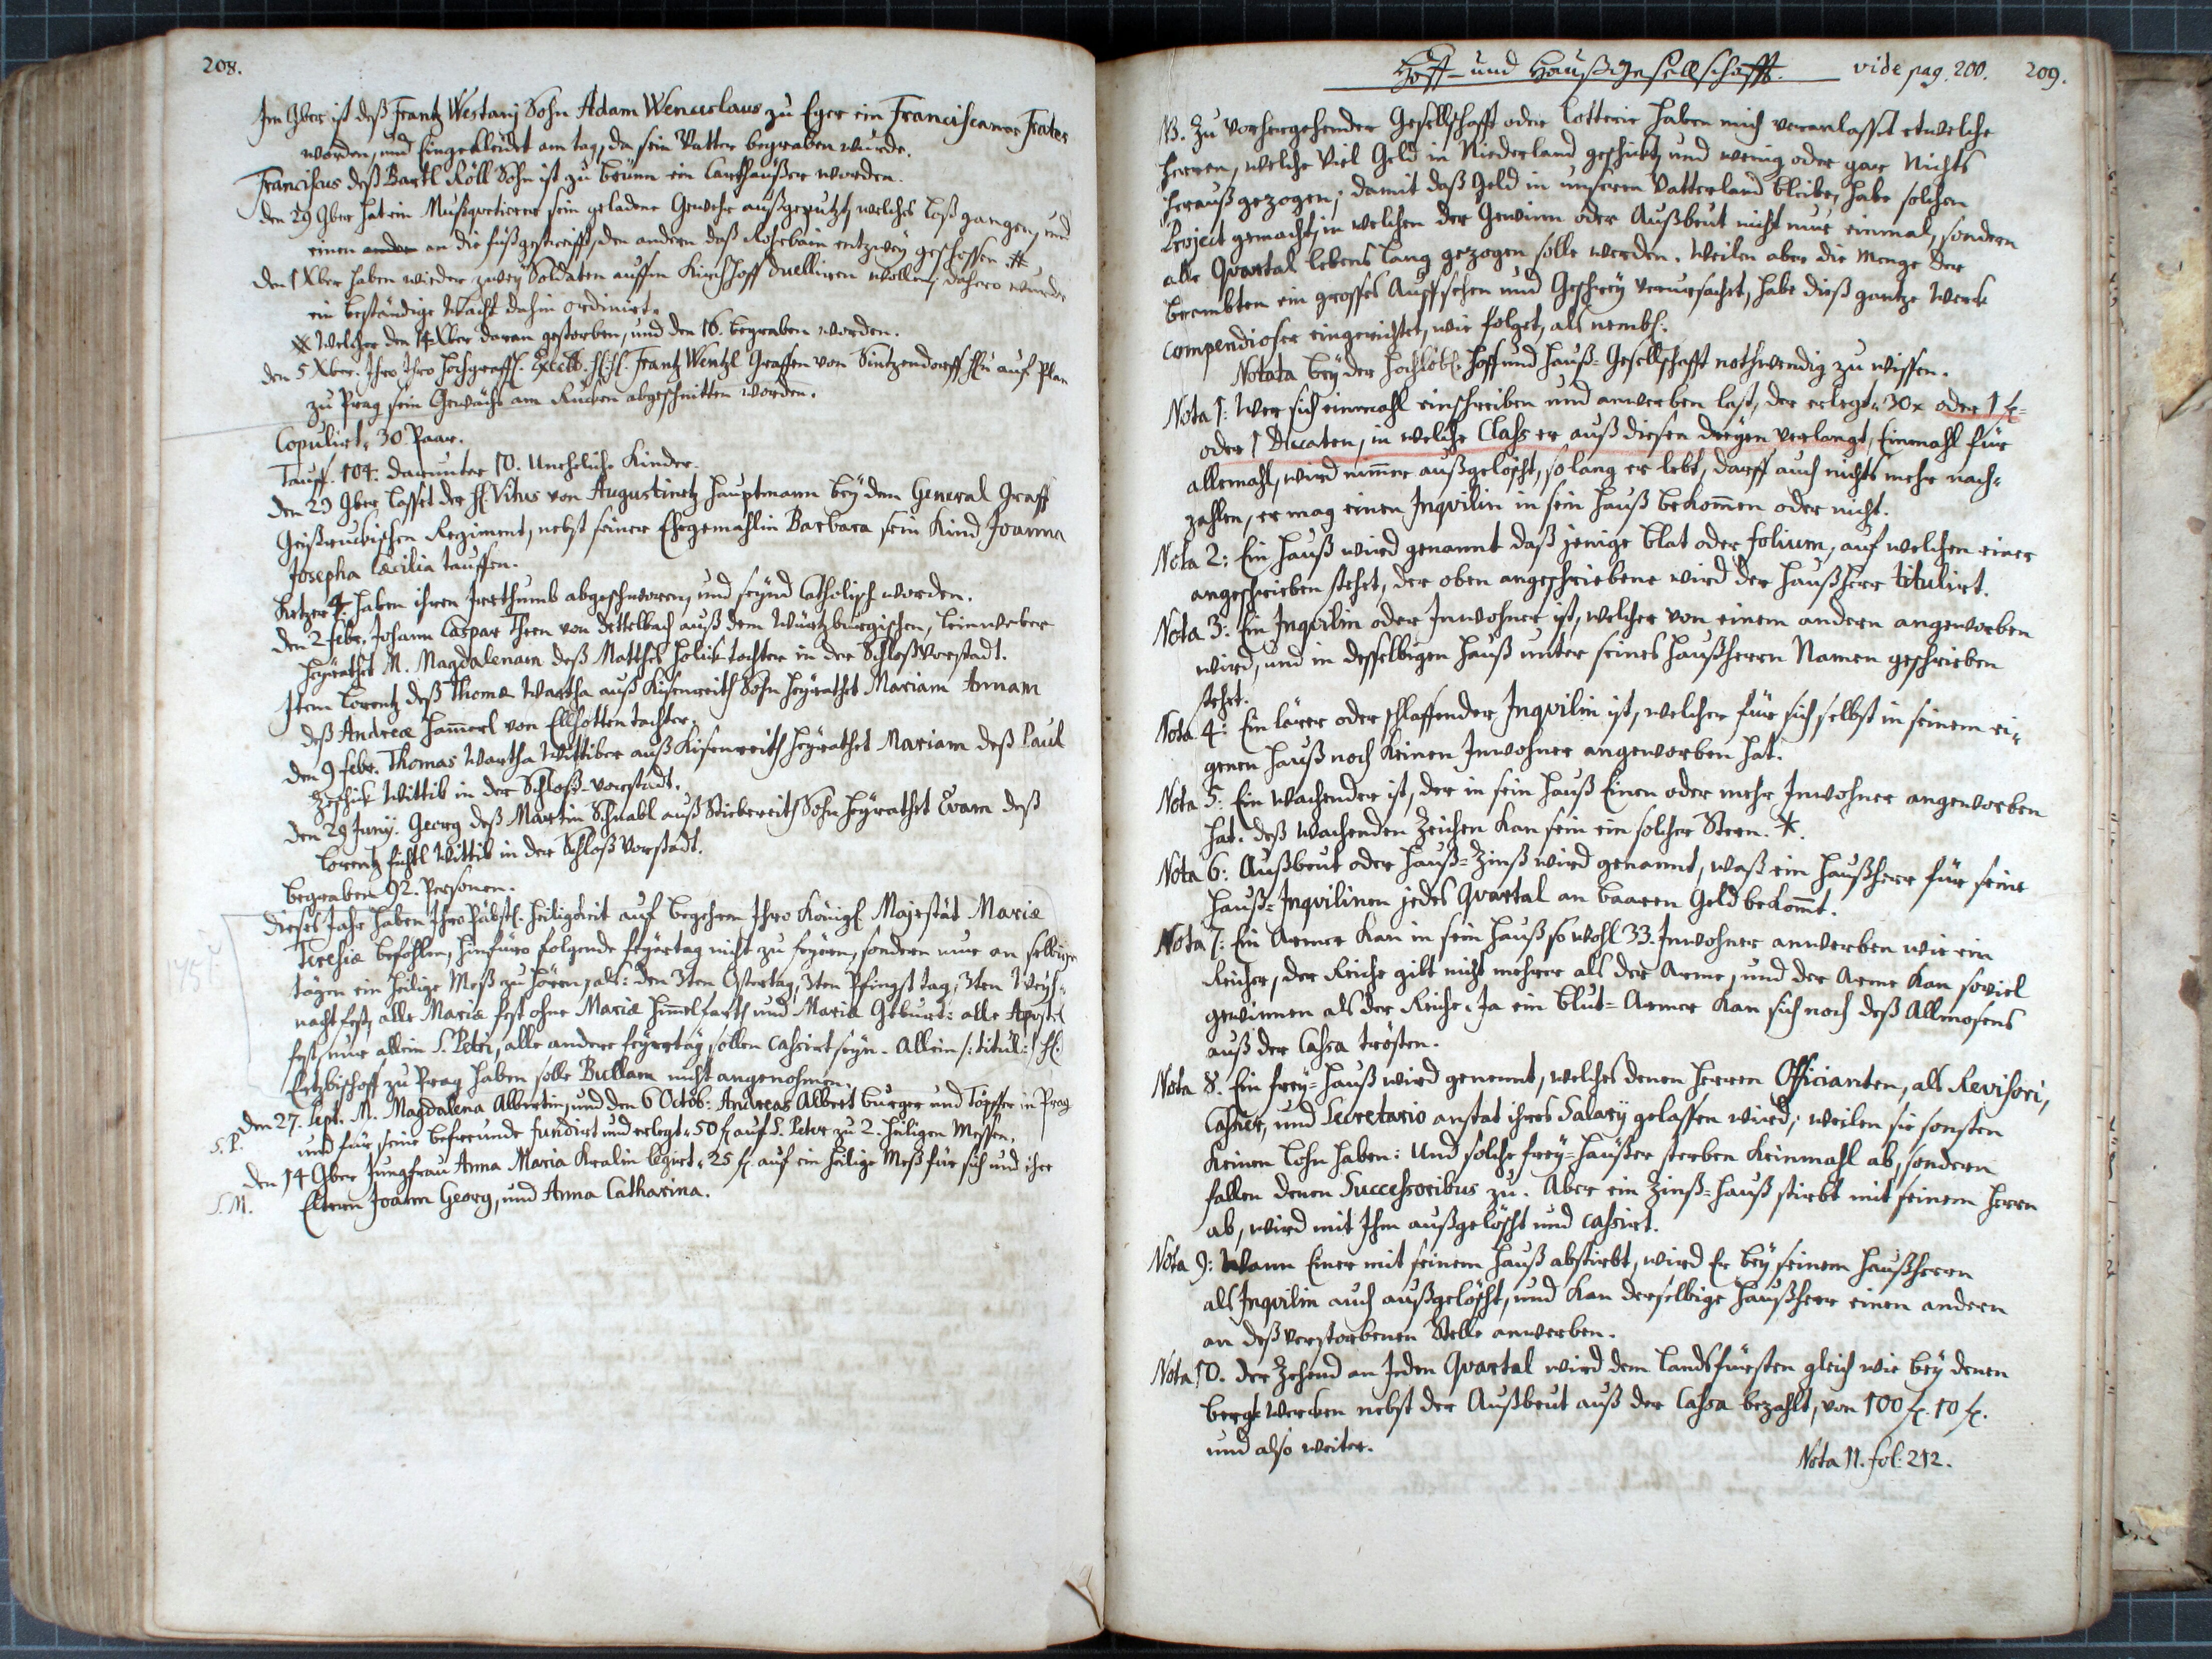 208.
Im 9ber ist deß Frantz Westarij Sohn Adam Wenceslaus zu Eger ein Franciscaner Frater
worden, und Eingekleidet am tag, da sein Vatter begraben wurde.
Franciscus deß Bartl Köll Sohn ist zu brünn ein Carthäußer worden.
den 29 9ber hat ein Musquetierer sein geladene Gewehr außgeputzt, welches loß gangen, und
einen an die füß gestreifft, den andern daß Rohrbain entzwey geschossen #
den 1 Xber haben wieder zwey Soldaten auffm Kirchhoff duelliren wollen, dahero wurde
ein beständige Wacht dahin ordinirt.
# Welcher den 14 Xber daran gestorben, und den 16. begraben worden.
den 5 Xber. Ihro Ihro Hochgräffl. Excell. H. H. Frantz Wentzl Graffen von Sintzendorff Hn auf Plan
zu Prag sein Gewächs am Rucken abgeschnitten worden.
Copulirt. 30 Paar.
Tauff. 104. darunter 10. Uneheliche Kinder.
den 29 9ber lasset der H. Vitus von Augustinetz Hauptmann bey dem General Graff
Geißruckischen Regiment, nebst seiner Ehegemahlin Barbara sein Kind Joanna
Josepha Cæcilia tauffen.
Ketzer 4. haben ihren Irrthumb abgeschworen, und seynd Catholisch worden.
den 2 febr. Johann Caspar Then von Dettelbach auß dem Würtzburgischen, leinweber
heyrathet M. Magdalenam deß Matthes Holick tochter in der Schloßvorstadt.
Item Lorentz deß Thomæ Wartha auß Kisenreith Sohn heyrathet Mariam Annam
deß Andreæ Hamerl von Ellhotten tochter.
den 9 febr. Thomas Wartha Wittiber auß Kisenreith heyrathet Mariam deß Paul
Zeschick Wittib in der Schloß-vorstadt.
den 29 Junij. Georg deß Martin Schnabl auß Stiebereith Sohn heyrathet Evam deß
Lorentz fichtl Wittib in der Schloß Vorstadt.
begraben 92. Personen.
dieses Jahr haben Ihro Päbstl. Heiligkeit auf begehren Ihro Königl. Majestät Mariæ
Teresiæ befohlen, hinfüro folgende feyertag nicht zu feyern, sondern nur an selbigen
tägen ein heilige Meß zu hören, als: den 3ten Ostertag, 3ten Pfingst tag, 3ten Weyh-
nacht fest, alle Mariæ fest ohne Mariæ Himelfarth und Mariæ Geburt: alle Apostel
fest, nur allein S. Petri, alle andere feyrtäg sollen cassirt seyn. Allein /: titul: / H.
Ertzbischoff zu Prag haben solle Bullam nicht angenohmen.
den 27. Sept. M. Magdalena Albertin, und den 6 Octob: Andreas Albert burger und Töpffer in Prag
S. P. und für seine befreunde fundirt und erlegt 50 f. auf S. Peter zu 2. heiligen Messen.
den 14 9ber Jungfrau Anna Maria Kralin legirt 25 f. auf ein heilige Meß für sich und ihre
S. M. Eltern Joann Georg, und Anna Catharina.
Hoff- und Haußgesellschafft. vide pag. 200. 209.
NB. Zu vorhergehender Gesellschafft oder Lotterie haben mich veranlasset etwelche
Herren, welche viel Geld in Niederland geschickt, und wenig oder gar Nichts
heraußgezogen; damit daß Geld in unseren Vatterland bleibe, habe solchen
Project gemacht, in welchen der Gewinn oder Außbeut nicht nur einmal, sondern
alle Quartal lebens lang gezogen solle werden. Weilen aber die Menge der
beambten ein grosses Auffsehen und Geschrey verursachet, habe dieß gantze Werck
compendioser eingerichtet, wie folget, als nembl:
Notata bey der Hochlöbl. Hoff und Hauß-Gesellschafft nothwendig zu wissen.
Nota 1: Wer sich einmahl einschreiben und anwerben last, der erlegt 30 x oder 1 f.
oder 1 Ducaten, in welche Class er auß diesen dreyen verlangt, Einmahl für
allemahl, wird nimer außgelöscht, so lang er lebt, darff auch nichts mehr nach-
zahlen, er mag einen Inqvilin in sein Hauß bekomen oder nicht.
Nota 2: Ein Hauß wird genannt daß jenige blat oder folium, auf welchen einer
angeschrieben stehet, der oben angeschriebene wird der Haußherr titulirt.
Nota 3: Ein Inqvilin oder Inwohner ist, welcher von einem andern angeworben
wird, und in desselbigen Hauß unter seines Haußherrn Namen geschrieben
stehet.
Nota 4: Ein lärer oder schlaffender Inqvilin ist, welcher für sich selbst in seinem ei-
genen Hauß noch keinen Inwohner angeworben hat.
Nota 5: Ein Wachender ist, der in sein Hauß Einen oder mehr Inwohner angeworben
hat. deß Wachenden Zeichen kan sein ein solcher Stern. *.
Nota 6: Außbeut oder Hauß-Zinß wird genannt, waß ein Haußherr für seine
Hauß-Inqvilinen jedes Qvartal an baaren Geld bekomt.
Nota 7: Ein Armer kan in sein Hauß so wohl 33. Inwohner anwerben wie ein
Reicher, der Reiche gibt nicht mehrer als der Arme, und der Arme kan soviel
gewinnen als der Reiche. Ja ein blut-Armer kan sich noch deß Allmosens
auß der Cassa trösten.
Nota 8. Ein frey-Hauß wird genennt, welches denen Herren Officianten, als Revisori,
Cassier, und Secretario anstat ihres Salarij gelassen wird; weilen sie sonsten
keinen Lohn haben: Und solche frey-Häußer sterben keinmahl ab, sondern
fallen denen Successoribus zu. Aber ein Zinß-Hauß stirbt mit seinem Herrn
ab, wird mit Ihm außgelöscht und cassirt.
Nota 9: Wann Einer mit seinem Hauß abstirbt, wird Er bey seinem Haußherrn
als Inqvilin auch außgelöscht, und kan derselbige Haußherr einen andern
an deß verstorbenen Stelle anwerben.
Nota 10. der Zehend an jeden Qvartal wird dem Landsfürsten gleich wie bey denen
bergk Wercken nebst der Außbeut auß der Cassa bezahlt, von 100 f. 10 f.
und also weiter.
Nota 11. fol: 212.